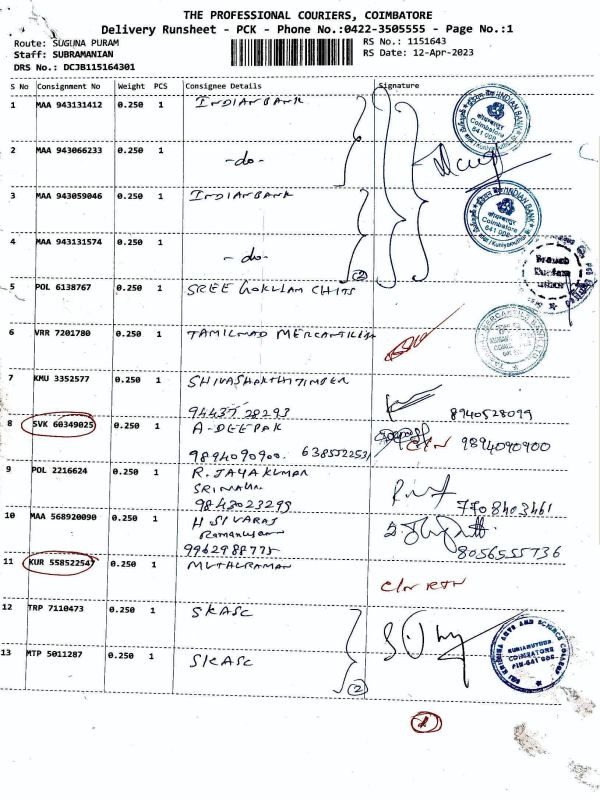 THE PROFESSIONAL COURIERS, COIMBATORE
Delivery Runsheet - PCK - Phone No.:0422-3505555 - Page No.:1
Route: SUGUNA PURAM
RS No.: 1151643
Staff: SUBRAMANIAN
RS Date: 12-Apr-2023
DRS No.: DCJB115164301
S No Consignment No Weight PCS Consignee Details Signature
1 MAA 943131412 0.250 1 INDIAN BANK
2 MAA 943066233 0.250 1 -do-
3 MAA 943059046 0.250 1 INDIAN BANK
4 MAA 943131574 0.250 1 -do-
2
5 POL 6138767 0.250 1 SREE GOKULAM CHITS
6 VRR 7201780 0.250 1 TAMILNAD MERCANTILE
7 KMU 3352577 0.250 1 SHIVASHAKTHI TIMBER
9443728293 8940528099
8 SVK 60349025 0.250 1 A-DEEPAK
9894090900. 6385522531 9894090900
9 POL 2216624 0.250 1 R. JAYAKUMAR
9843023299 7708403461
10 MAA 568920090 0.250 1 H SIVARAJ
9962988775 8056555736
11 KUR 558522547 0.250 1 MUTHURAMAN
12 TRP 7110473 0.250 1 SKASC
13 MTP 5011287 0.250 1 SKASC
2
INDIAN BANK
Coimbatore
641 008
INDIAN BANK
Coimbatore
641 008
KUNIAMUTHUR
COIMBATORE
PIN-641 008